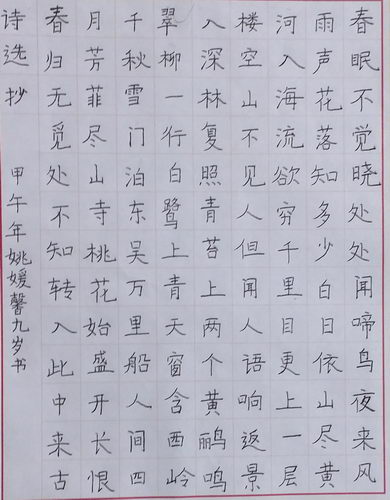 春眠不觉晓处处闻啼鸟夜来风
雨声花落知多少白日依山尽黄
河入海流欲穷千里目更上一层
楼空山不见人但闻人语响返景
入深林复照青苔上两个黄鹂鸣
翠柳一行白鹭上青天窗含西岭
千秋雪门泊东吴万里船人间四
月芳菲尽山寺桃花始盛开长恨
春归无觅处不知转入此中来古
诗选抄 甲午年姚媛馨九岁书